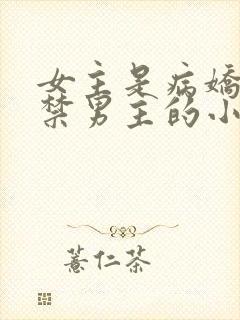 女主是病嬌
禁男主的小
薏仁茶